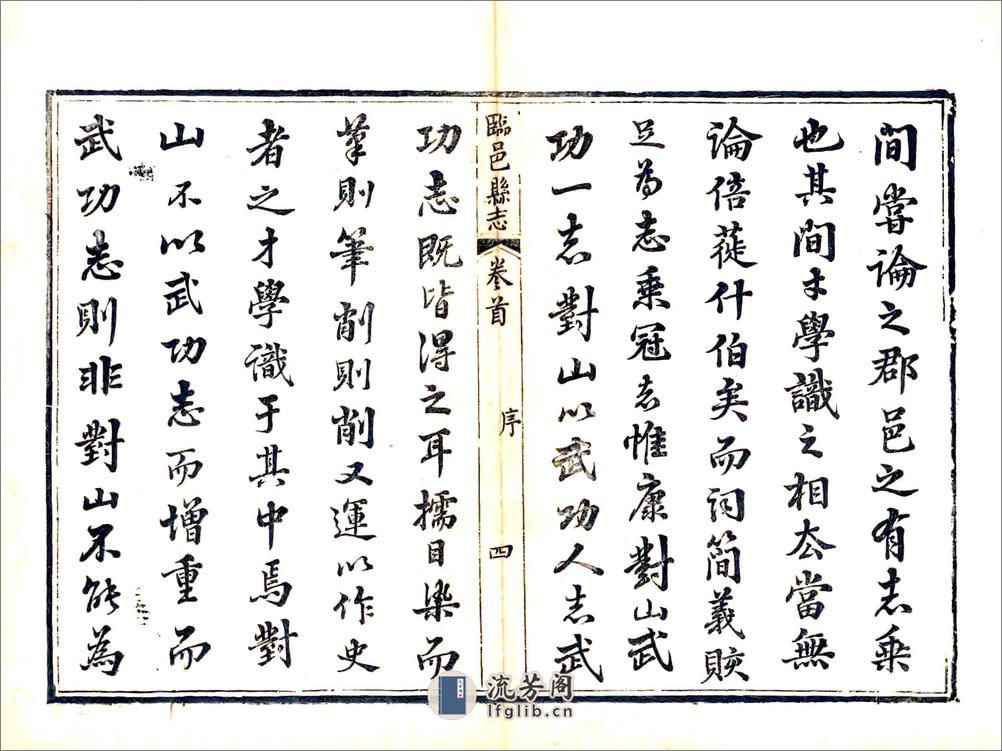 間嘗論之郡邑之有志乘
也其間才學識之相去當無
論倍蓰什伯矣而詞簡義賅
足為志乘冠者惟康對山武
功一志對山以武功人志武
臨邑縣志 卷首 序 四
功志既皆得之耳擩目染而
筆則筆削則削又運以作史
者之才學識于其中焉對
山不以武功志而增重而
武功志則非對山不能為
流芳阁
lfglib.cn